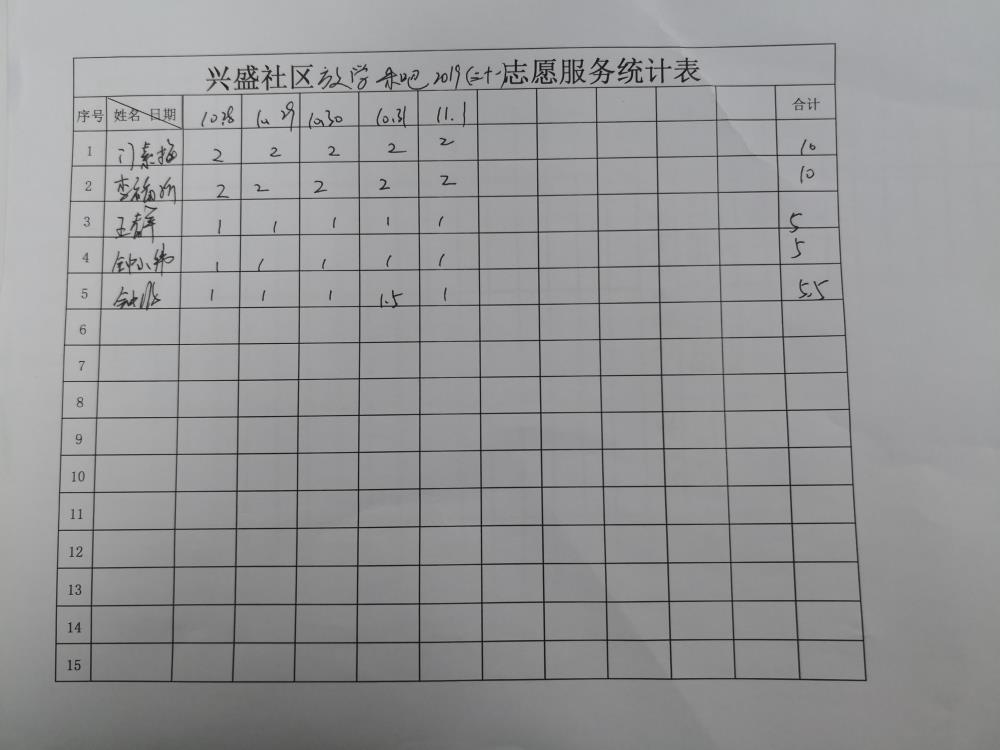 兴盛社区放学来吧2019(二十一)志愿服务统计表
序号 姓名 日期 10.28 10.29 10.30 10.31 11.1 合计
1 门素梅 2 2 2 2 2 10
2 李 2 2 2 2 2 10
3 王春萍 1 1 1 1 1 5
4 钟小纬 1 1 1 1 1 5
5 钟 1 1 1 1.5 1 5.5
6
7
8
9
10
11
12
13
14
15